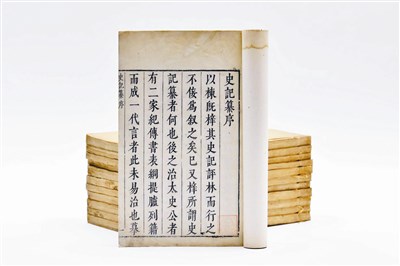 史記纂序
以棟既梓其史記評林而行之
不佞爲叙之矣已又梓所謂史
記纂者何也後之治太史公者
有二家紀傳書表綱提臚列籍
而成一代言者此未易治也
史記纂序